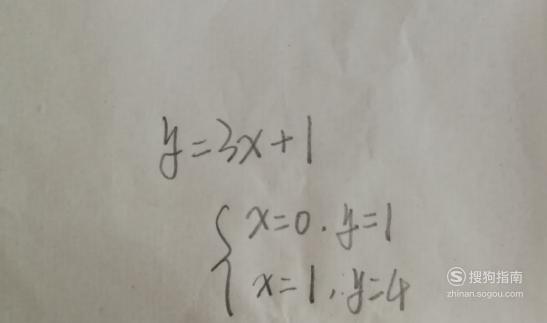 y=3x+1
x=0.y=1
x=1,y=4
搜狗指南
zhinan.sogou.com